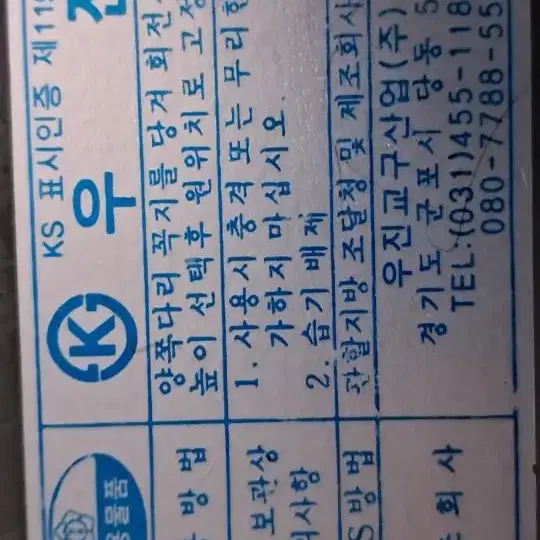 KS 표시인증 제119
우진
물품
방법
양쪽다리 꼭지를 당겨 회전시
높이 선택후 원위치로 고정
보관상
의사항
1. 사용시 충격 또는 무리한
가하지 마십시오.
2. 습기배제
S방법
관할지방 조달청 및 제조회사
회사
우진교구산업(주)
경기도 군포시 당동 5
TEL:(031)455-118
080-7788-55